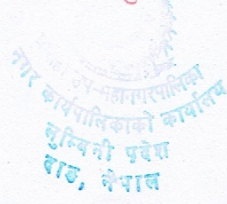 उप-महानगरपालिका
नगर कार्यपालिकाको कार्यालय
लुम्बिनी प्रदेश
दाङ, नेपाल